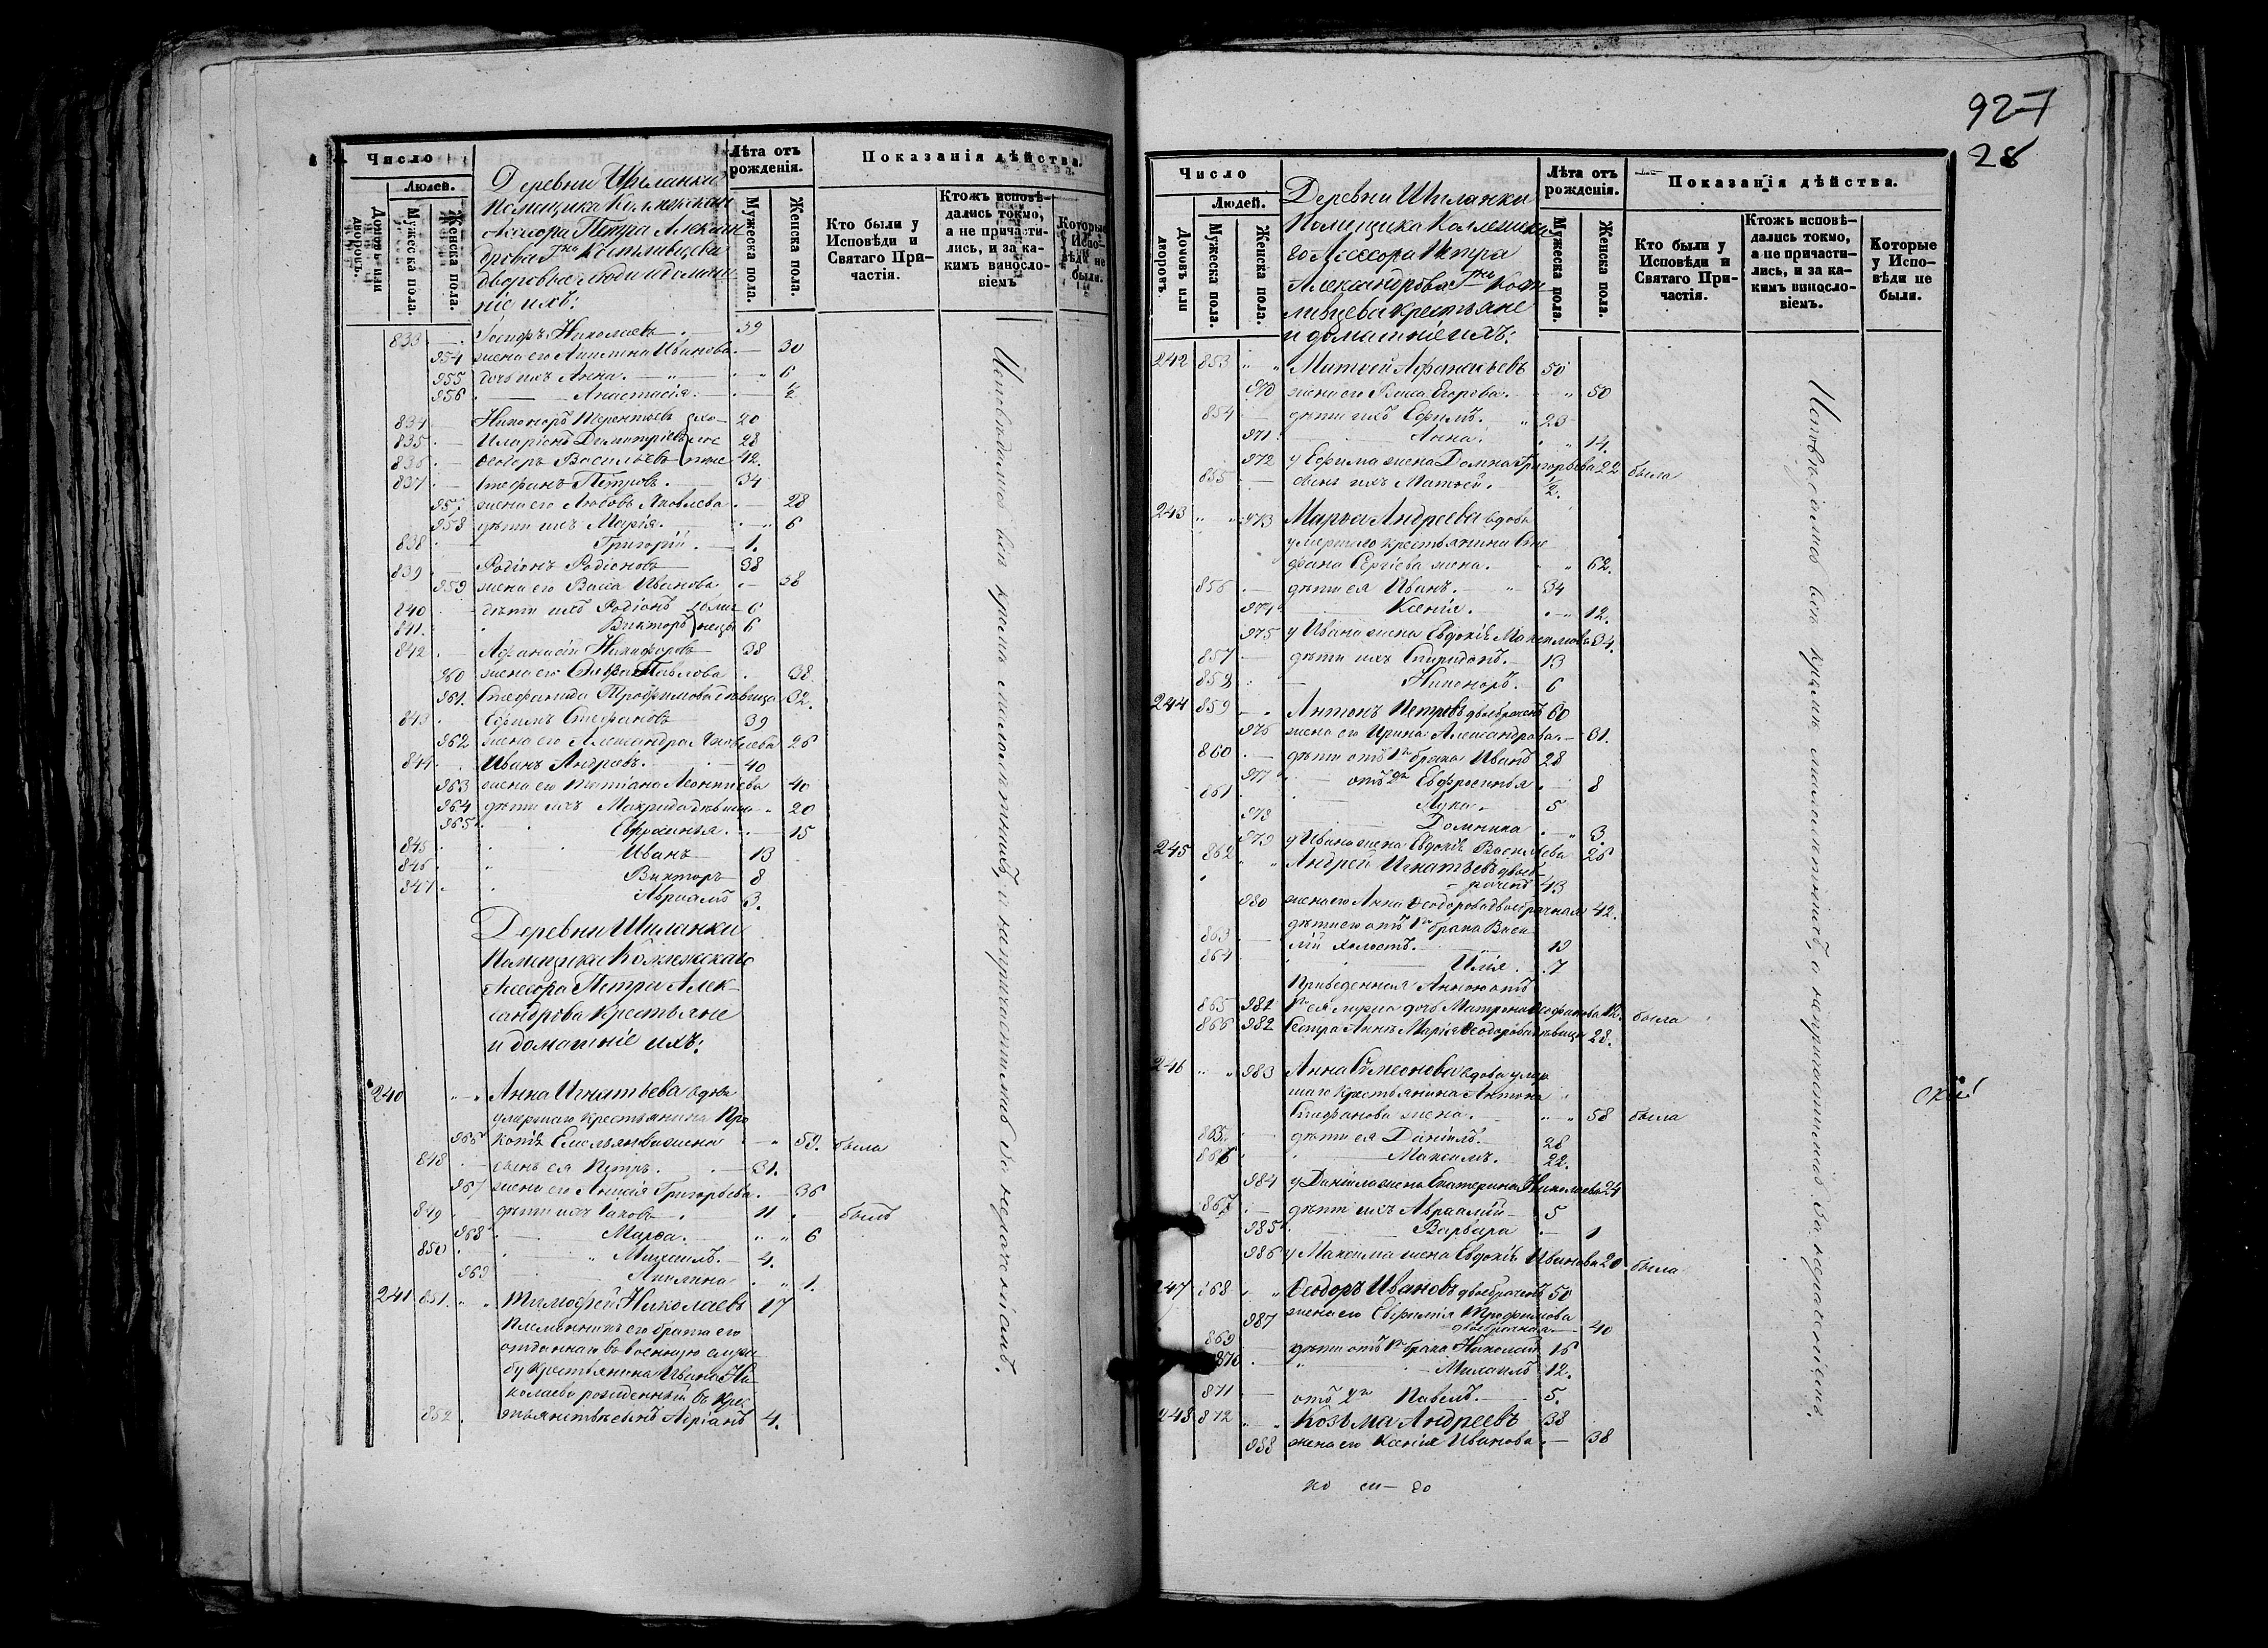 Число
Людей.
Домовъ или дворовъ.
Мужеска пола.
Женска пола.
Деревни Шиланки
Помещика Коллежскаго
Ассесора Петра Алексан
дрова Г-на
дворовые люди и домаш
ніе ихъ:
Лѣта отъ рожденія.
Мужеска пола.
Женска пола.
Показанія дѣйства.
Кто были у Исповѣди и Святаго Причастія.
Ктожъ исповѣдались токмо, а не причастились, и за какимъ винословіемъ
Которые у Исповѣди не были.
833 Іосифъ Николаевъ 39
954 жена его Акилина Иванова 30
955 дочь ихъ Анна. 6
956 Анастасія. ½
834 Никоноръ Терентьевъ 20
835 Иларіонъ Димитріевъ 28
836 Ѳеодоръ Васильевъ 42.
837 Стефанъ Петровъ. 34
957 жена его Любовь Яковлева 28
958 дѣти ихъ Марія. 6
838 Григорій 1.
839 Родіонъ Родіоновъ 38
959 жена его Васса Иванова 38
840 дѣти ихъ Родіонъ 6
841. Викторъ 6
842 Афанасій Никифоровъ 38
960 жена его Павлова 38.
961. Стефанида Трофимова дѣвица 32.
843 Ефимъ Стефановъ 39
962 жена его Александра Яковлева 26
844 Иванъ Андреевъ. 40
963 жена его Татіана Леонтіева 40
964 дѣти ихъ Макрида дѣвица 20
965 Евфросинья 15
845 Иванъ 13
846 Викторъ 8
847 Авраамъ 3.
Деревни Шиланки
Помещика Коллежскаго
Ассесора Петра Алек-
сандрова Крестьяне
и домашніе ихъ:
240 Анна Игнатьева вдова
умершаго крестьянина Про
966 Емельянова жена 59. была
848 сынъ ея Петръ. 31.
967 жена его Анисія Григорьева. 36
849 дѣти ихъ Іаковъ 11 былъ
968 Марѳа. 6
850 Михаилъ. 4.
969 Акилина 1.
241 851. Тимофей Николаевъ 17
Племянникъ его брата его
отданнаго въ военную служ
бу крестьянина Ивана Ни
колаева рожденный въ крес
852 тьянствѣ сынъ Адріанъ 4.
Исповѣдались всѣ кромѣ малолѣтнихъ, а непричастились за нехоженіемъ.
927
28
Число
Людей.
Домовъ или дворовъ.
Мужеска пола.
Женска пола.
Деревни Шиланки
Помещика Коллежска
го Ассесора Петра
Александрова Г-на
крестьяне
и домашніе ихъ:
Лѣта отъ рожденія.
Мужеска пола.
Женска пола.
Показанія дѣйства.
Кто были у Исповѣди и Святаго Причастія.
Ктожъ исповѣдались токмо, а не причастились, и за какимъ винословіемъ.
Которые у Исповѣди не были.
242 853 Матвей Афанасьевъ 50
970 жена его Васса Егорова. 50
854 дѣти ихъ Ефимъ. 23
971 Анна. 14.
972 у Ефима жена Домна Григорьева 22 была
855 сынъ ихъ Матвей. ½.
243 973 Марѳа Андреева вдова
умершаго крестьянина Сте
фана Сергѣева жена. 62.
856 дѣти ея Иванъ. 34
974 Ксенія. 12.
975 у Ивана жена Евдокія Максимова 34.
857 дѣти ихъ Спиридонъ. 13
858 Никоноръ. 6
244 859 Антонъ Петровъ двоебраченъ 60
976 жена его Ирина Александрова. 31.
860 дѣти отъ 1го брака Иванъ 28
977 отъ 2го Евфросинья 8
861 Лука. 5
978 Домника 3.
979 у Ивана жена Евдокія Васильева 26
245 862 Андрей Игнатьевъ двоеб
раченъ 43
980 жена его Анна Ѳеодорова двоебрачная 42.
дѣти его отъ 1го брака Васи
863 лій холостъ. 19
864 Илія. 7
Приведенная Анною отъ
865 981 1го ея мужа дочь Матрона была
866 982 Сестра Анны Марія Ѳеодорова дѣвица 28.
246 983 Анна Симеонова вдова умер
шаго крестьянина Антона
Стефанова жена. 58 была
865 дѣти ея Даніилъ. 28
866 Максимъ. 22.
984 у Даніила жена Екатерина Николаева 24
867 дѣти ихъ Авраамій 5
985 Варвара 1
986 у Максима жена Евдокія Иванова 20 была
247 868 Ѳеодоръ Ивановъ двоебраченъ 50
987 жена его Евфимія Трофимова
двоебрачная 40
869 дѣти отъ 1го брака Николай 16
870 Михаилъ 12.
871 отъ 2го Павелъ. 5.
248 872 Козьма Андреевъ 38
988 жена его Ксенія Иванова 38
Исповѣдались всѣ кромѣ малолѣтнихъ, а непричастились за нехоженіемъ.